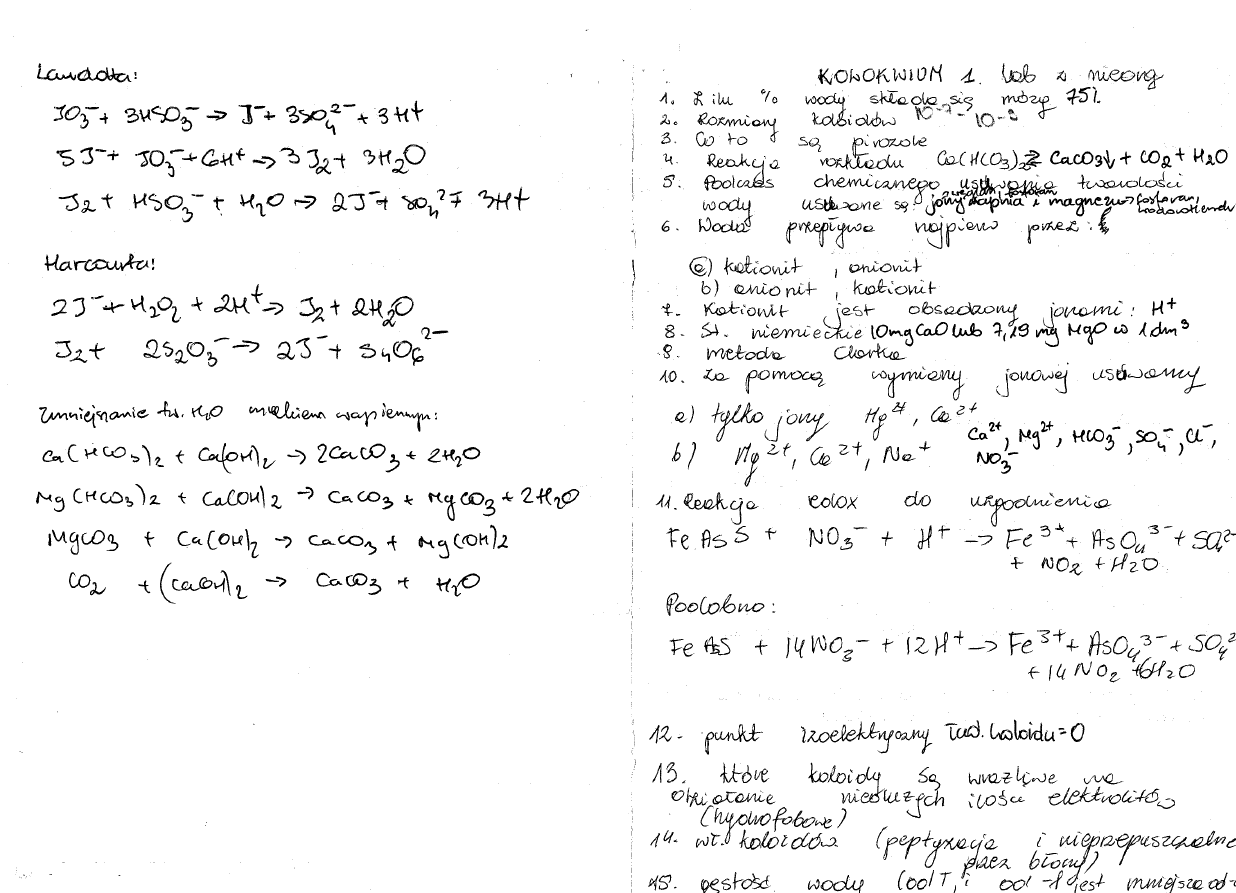 Landolta:
JO₃⁻ + 3HSO₃⁻ → J⁻ + 3SO₄²⁻ + 3H⁺
5J⁻ + JO₃⁻ + 6H⁺ → 3J₂ + 3H₂O
J₂ + HSO₃⁻ + H₂O → 2J⁻ + SO₄²⁻ + 3H⁺
Harcourta:
2J⁻ + H₂O₂ + 2H⁺ → J₂ + 2H₂O
J₂ + 2S₂O₃⁻ → 2J⁻ + S₄O₆²⁻
Zmniejszanie tw. H₂O mlekiem wapiennym:
Ca(HCO₃)₂ + Ca(OH)₂ → 2CaCO₃ + 2H₂O
Mg(HCO₃)₂ + Ca(OH)₂ → CaCO₃ + MgCO₃ + 2H₂O
MgCO₃ + Ca(OH)₂ → CaCO₃ + Mg(OH)₂
CO₂ + Ca(OH)₂ → CaCO₃ + H₂O
KOLOKWIUM 1. lab z nieorg
1. Z ilu % wody składa się mózg 75%
2. Rozmiary koloidów 10⁻⁷ - 10⁻⁹
3. Co to są pirozole
4. Reakcja rozkładu Ca(HCO₃)₂ ⇄ CaCO₃↓ + CO₂ + H₂O
5. Podczas chemicznego usuwania twardości
wody usuwane są: jony wapnia i magnezu
6. Woda przepływa najpierw przez:
a) kationit, anionit
b) anionit, kationit
7. Kationit jest obsadzony jonami: H⁺
8. St. niemieckie 10mg CaO lub 7,19 mg MgO w 1dm³
9. metoda Clarka
10. Za pomocą wymiany jonowej usuwamy
a) tylko jony Mg²⁺, Ca²⁺
b) Mg²⁺, Ca²⁺, Na⁺
Ca²⁺, Mg²⁺, HCO₃⁻, SO₄⁻, Cl⁻,
NO₃⁻
11. Reakcja redox do uzgodnienia
FeAsS + NO₃⁻ + H⁺ → Fe³⁺ + AsO₄³⁻ + SO₄²⁻
+ NO₂ + H₂O
Podobno:
FeAsS + 14NO₃⁻ + 12H⁺ → Fe³⁺ + AsO₄³⁻ + SO₄²
+ 14NO₂ + 6H₂O
12. punkt izoelektryczny ład. koloidu = 0
13. które koloidy są wrażliwe na
działanie niedużych ilości elektrolitów
(hydrofobowe)
14. wł. koloidów (peptyzacja i nieprzepuszczalne
przez błony)
15. gęstość wody (od T, i od jest mniejsza od